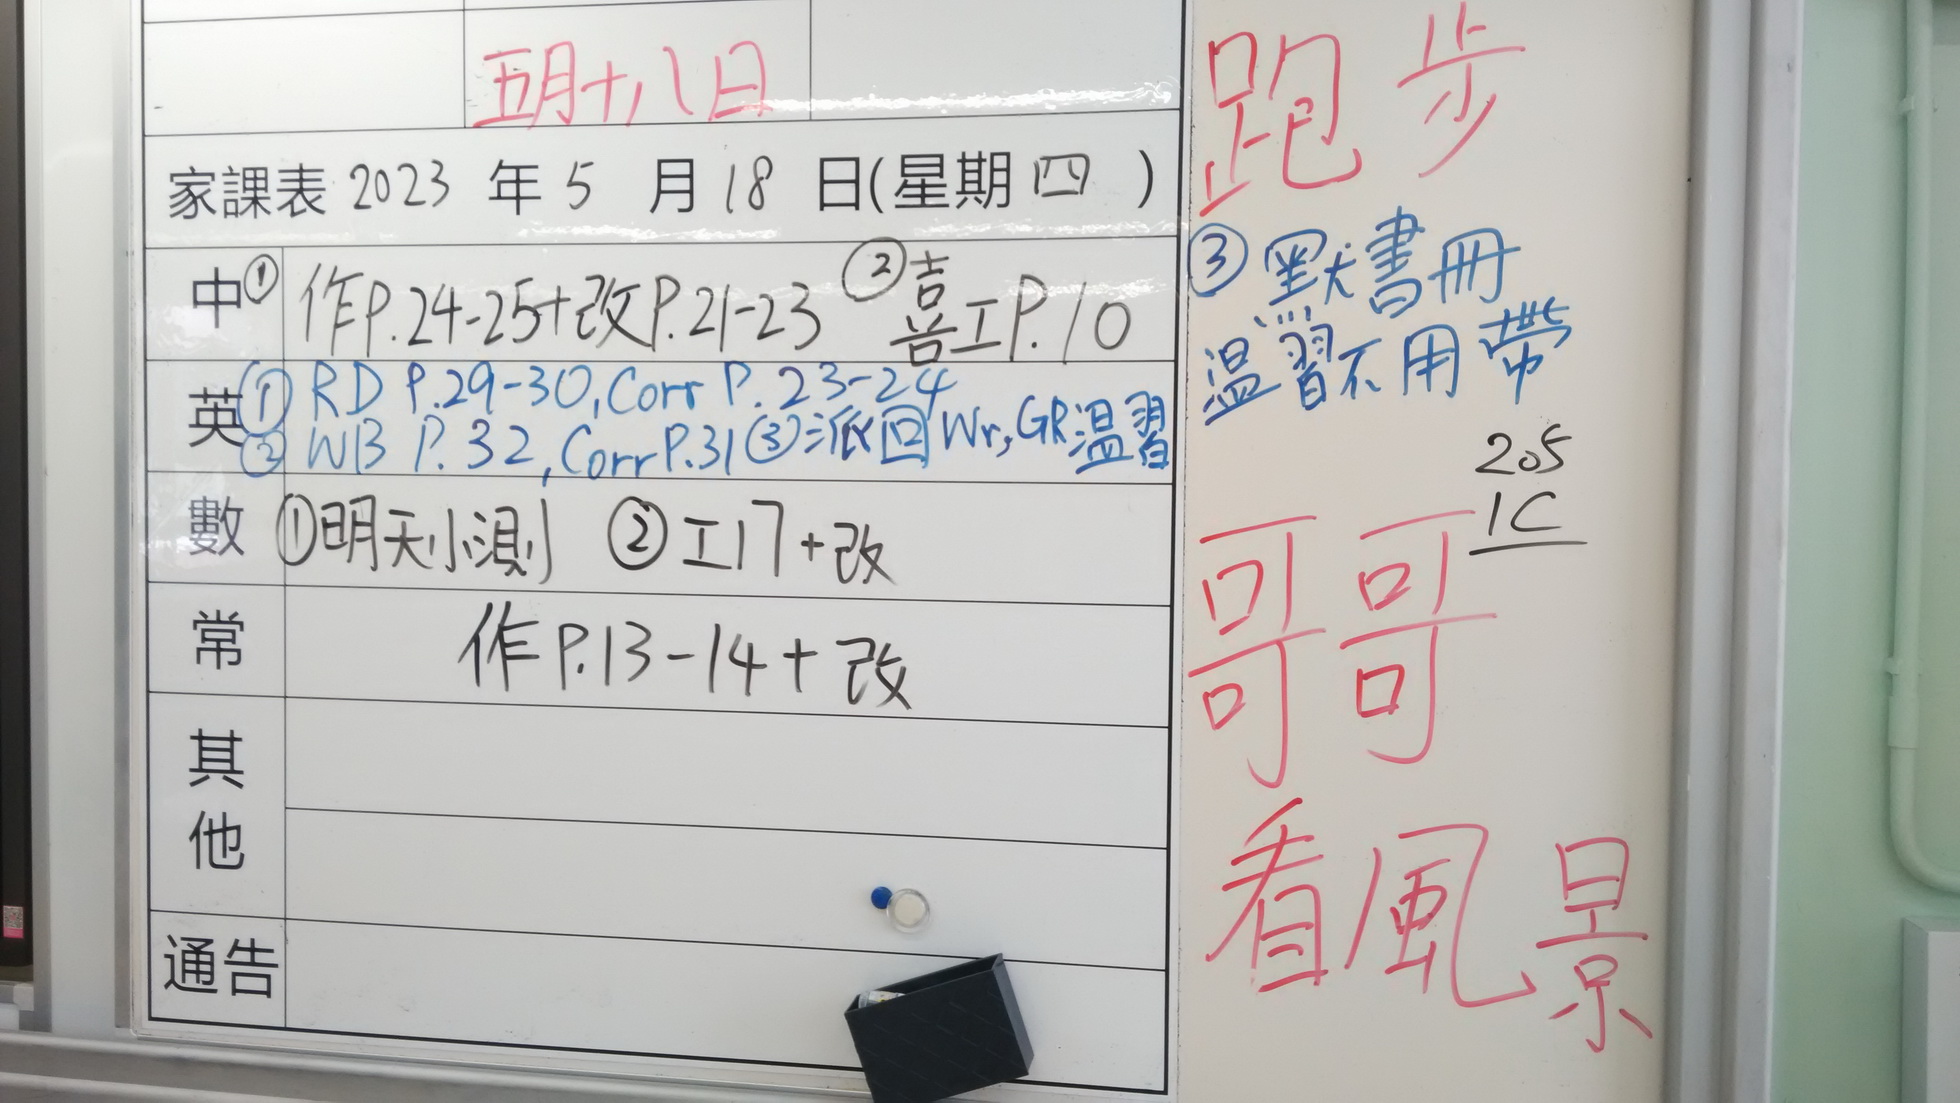 五月十八日
家課表 2023 年 5 月 18 日(星期四)
中 ① 作P.24-25+改P.21-23 ② 喜工P.10
英 ① RD P.29-30, Corr P.23-24
② WB P.32, Corr P.31 ③ 派回 Wr, GR溫習
數 ① 明天小測 ② 工17+改
常 作P.13-14+改
其他
通告
跑步
③ 默書冊
溫習不用帶
205
1C
哥哥
看風景